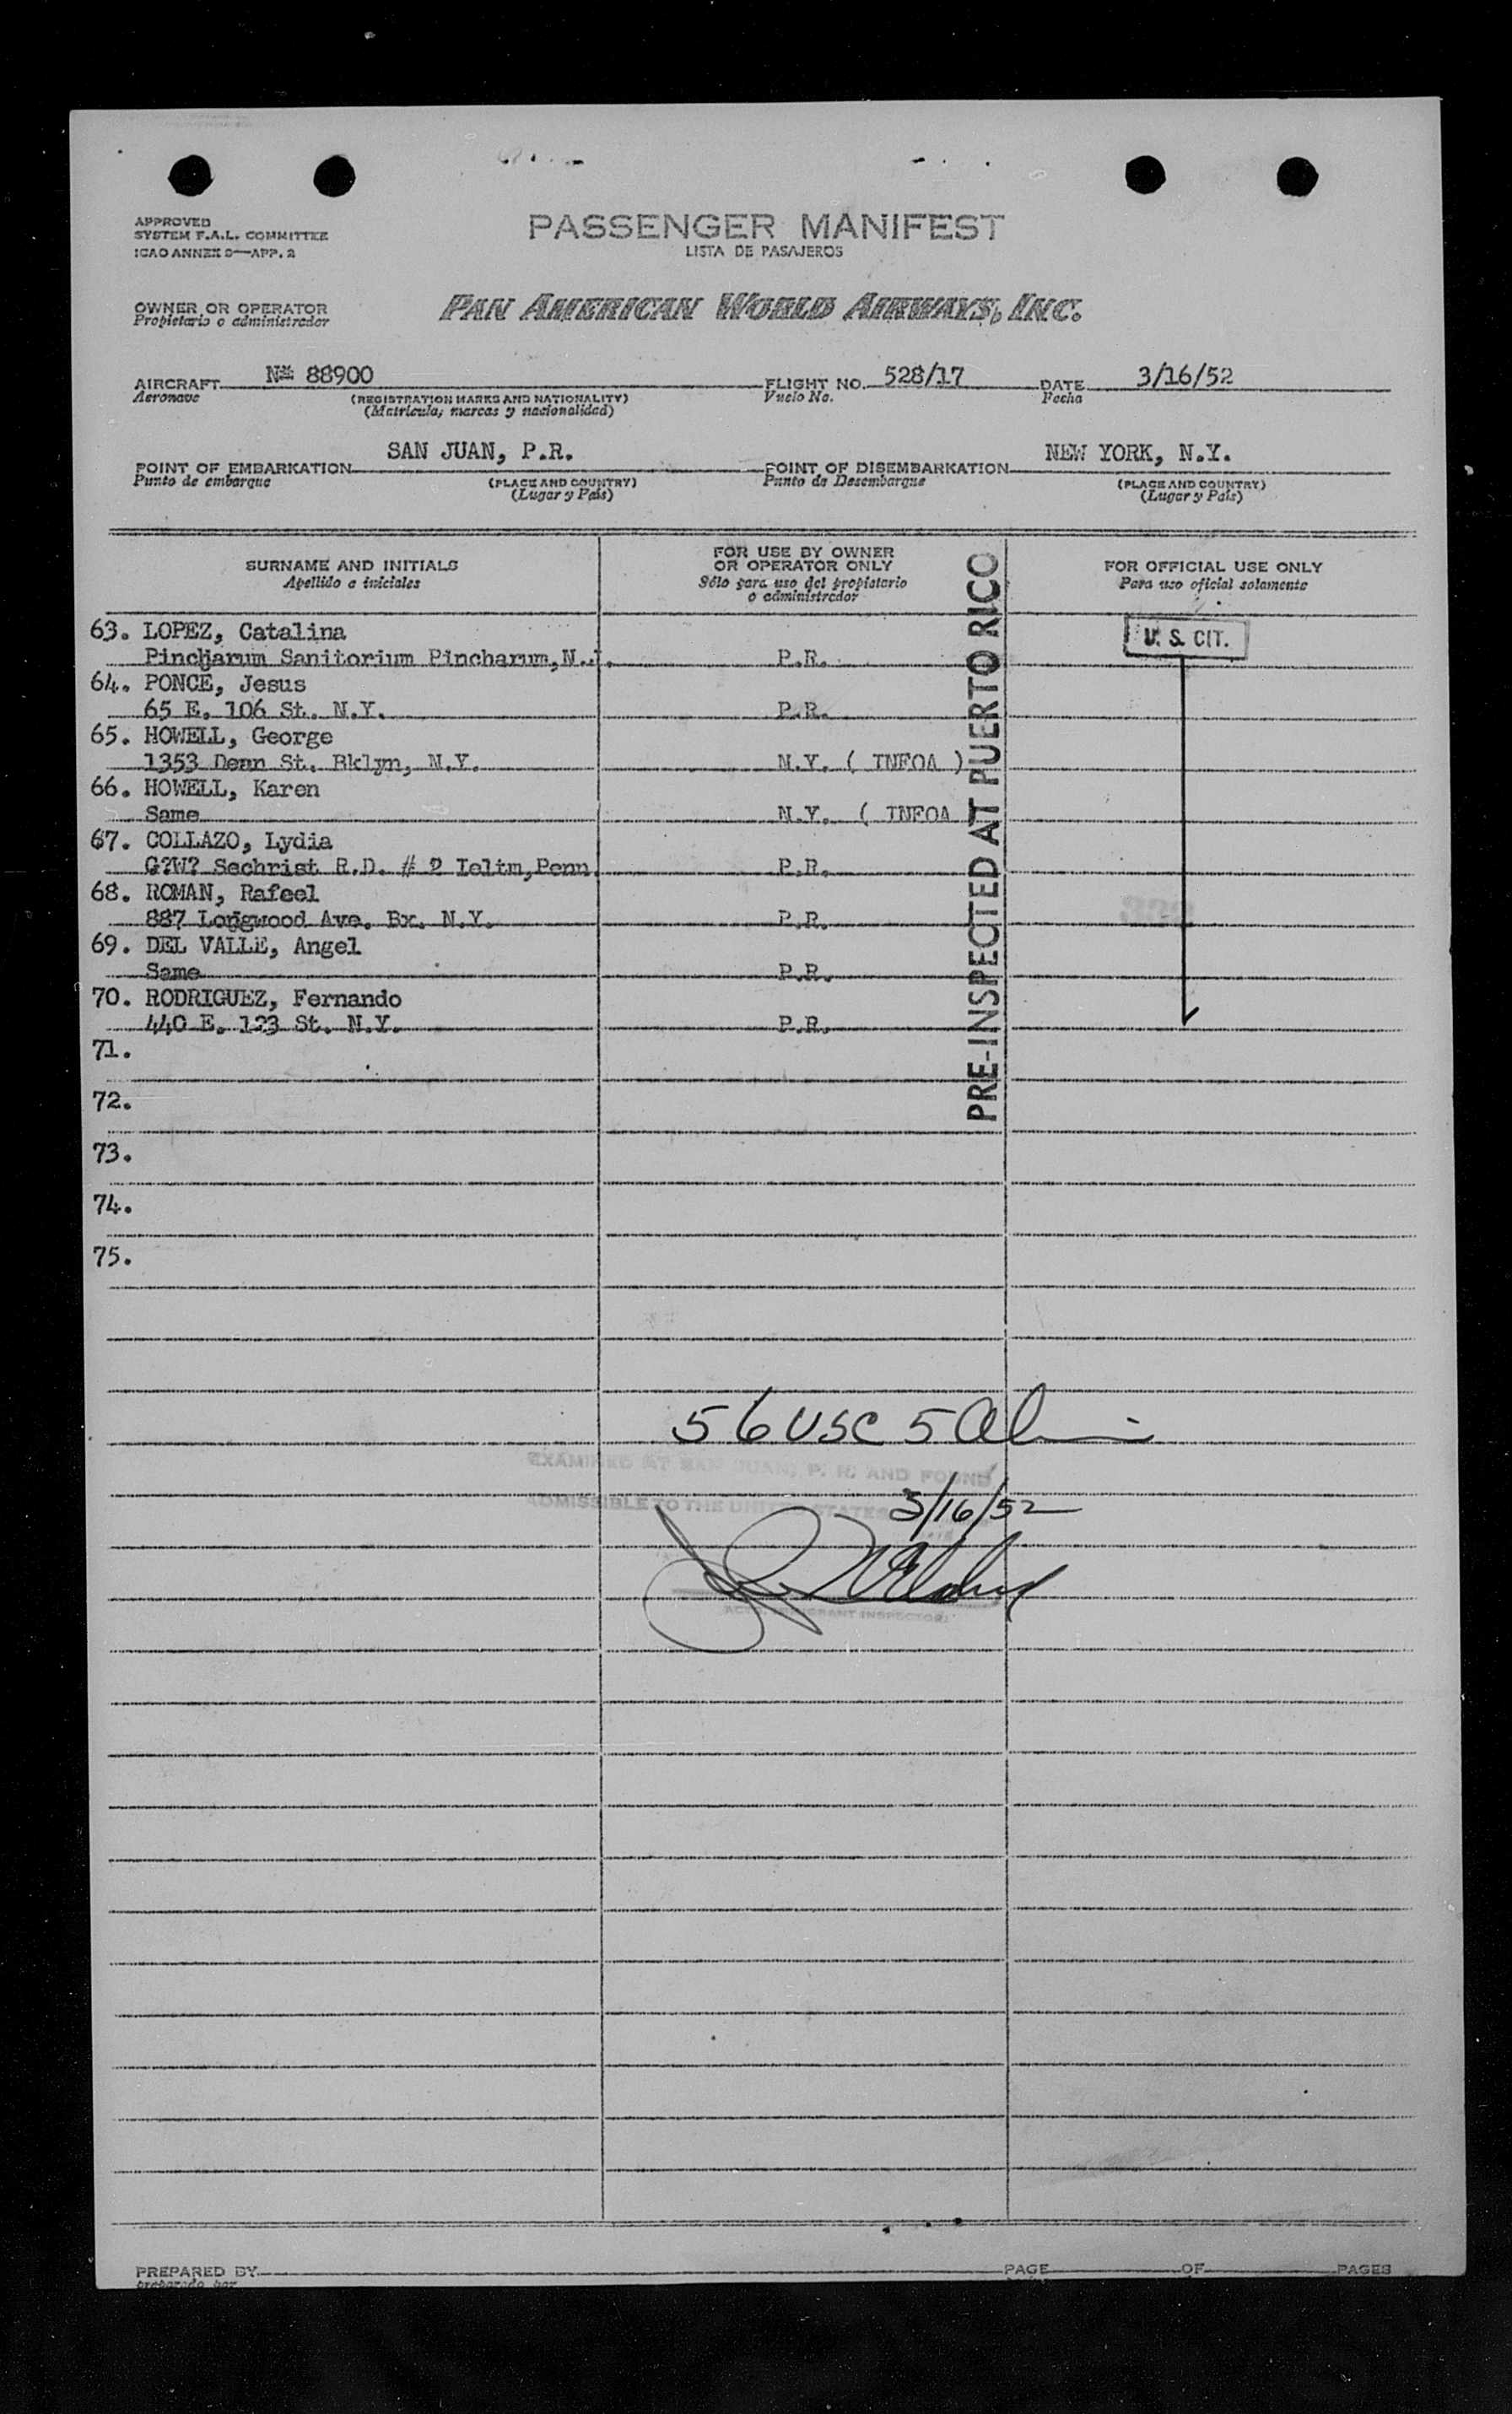 APPROVED
SYSTEM F.A.L. COMMITTEE
ICAO ANNEX 9—APP. 2
PASSENGER MANIFEST
LISTA DE PASAJEROS
OWNER OR OPERATOR
Propietario o administrador
PAN AMERICAN WORLD AIRWAYS, INC.
AIRCRAFT 88900 FLIGHT NO. 528/17 DATE 3/16/52
Aeronave (REGISTRATION MARKS AND NATIONALITY) Vuelo No. Fecha
(Matrícula, marcas y nacionalidad)
POINT OF EMBARKATION SAN JUAN, P.R. POINT OF DISEMBARKATION NEW YORK, N.Y.
Punto de embarque (PLACE AND COUNTRY) Punto de Desembarque (PLACE AND COUNTRY)
(Lugar y País) (Lugar y País)
SURNAME AND INITIALS
Apellido e iniciales
FOR USE BY OWNER
OR OPERATOR ONLY
Sólo para uso del propietario
o administrador
FOR OFFICIAL USE ONLY
Para uso oficial solamente
PRE-INSPECTED AT PUERTO RICO
63. LOPEZ, Catalina U. S. CIT.
Pincharum Sanitorium Pincharum, P.R.
64. PONCE, Jesus
65 E. 106 St. N.Y. P.R.
65. HOWELL, George
1353 Dean St. Bklyn, N.Y. N.Y. ( INFOA )
66. HOWELL, Karen
Same N.Y. ( INFOA
67. COLLAZO, Lydia
G?W? Sechrist R.D. # 2 Penn. P.R.
68. ROMAN, Rafeel
887 Longwood Ave. Bx. N.Y. P.R.
69. DEL VALLE, Angel
Same P.R.
70. RODRIGUEZ, Fernando
440 E. 123 St. N.Y. P.R.
71.
72.
73.
74.
75.
56 USC 5 Al
EXAMINED AT SAN JUAN, P. R. AND FOUND
ADMISSIBLE TO THE UNITED STATES
3/16/52
IMMIGRANT INSPECTOR
PREPARED BY PAGE OF PAGES
preparado por